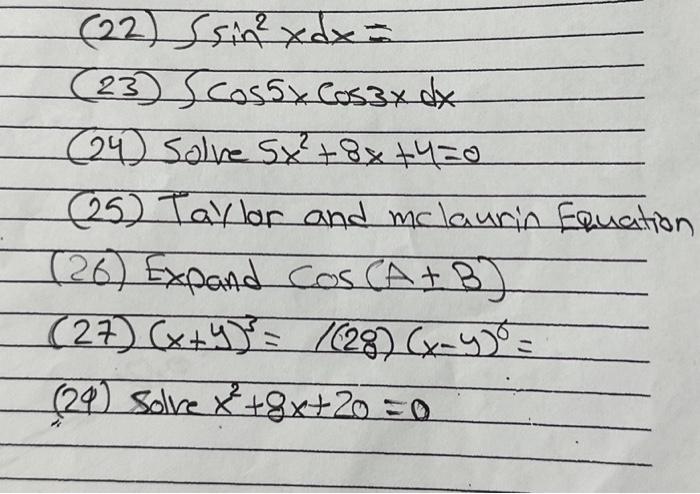 (22) ∫sin² x dx =
(23) ∫cos5x cos3x dx
(24) Solve 5x² + 8x + 4 = 0
(25) Taylor and mclaurin Equation
(26) Expand cos(A + B)
(27) (x + y)³ = /(28) (x - y)⁶ =
(29) Solve x² + 8x + 20 = 0